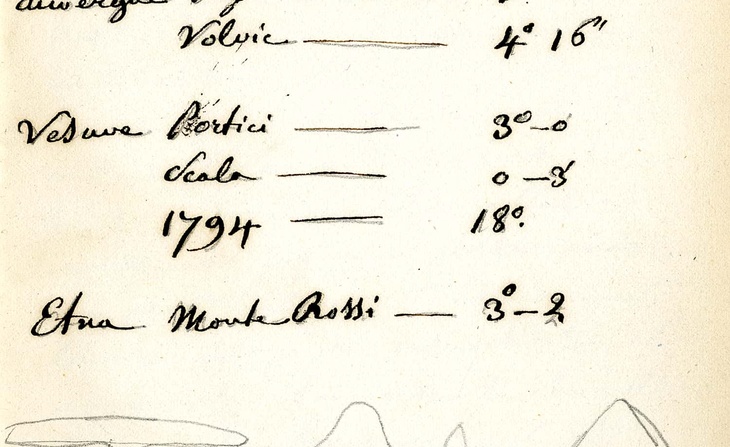 auvergne
Volvic — 4° 16"
Vesuve Portici — 3°-0
Scala — 0-3'
1794 — 18°.
Etna Monte Rossi — 3°-2